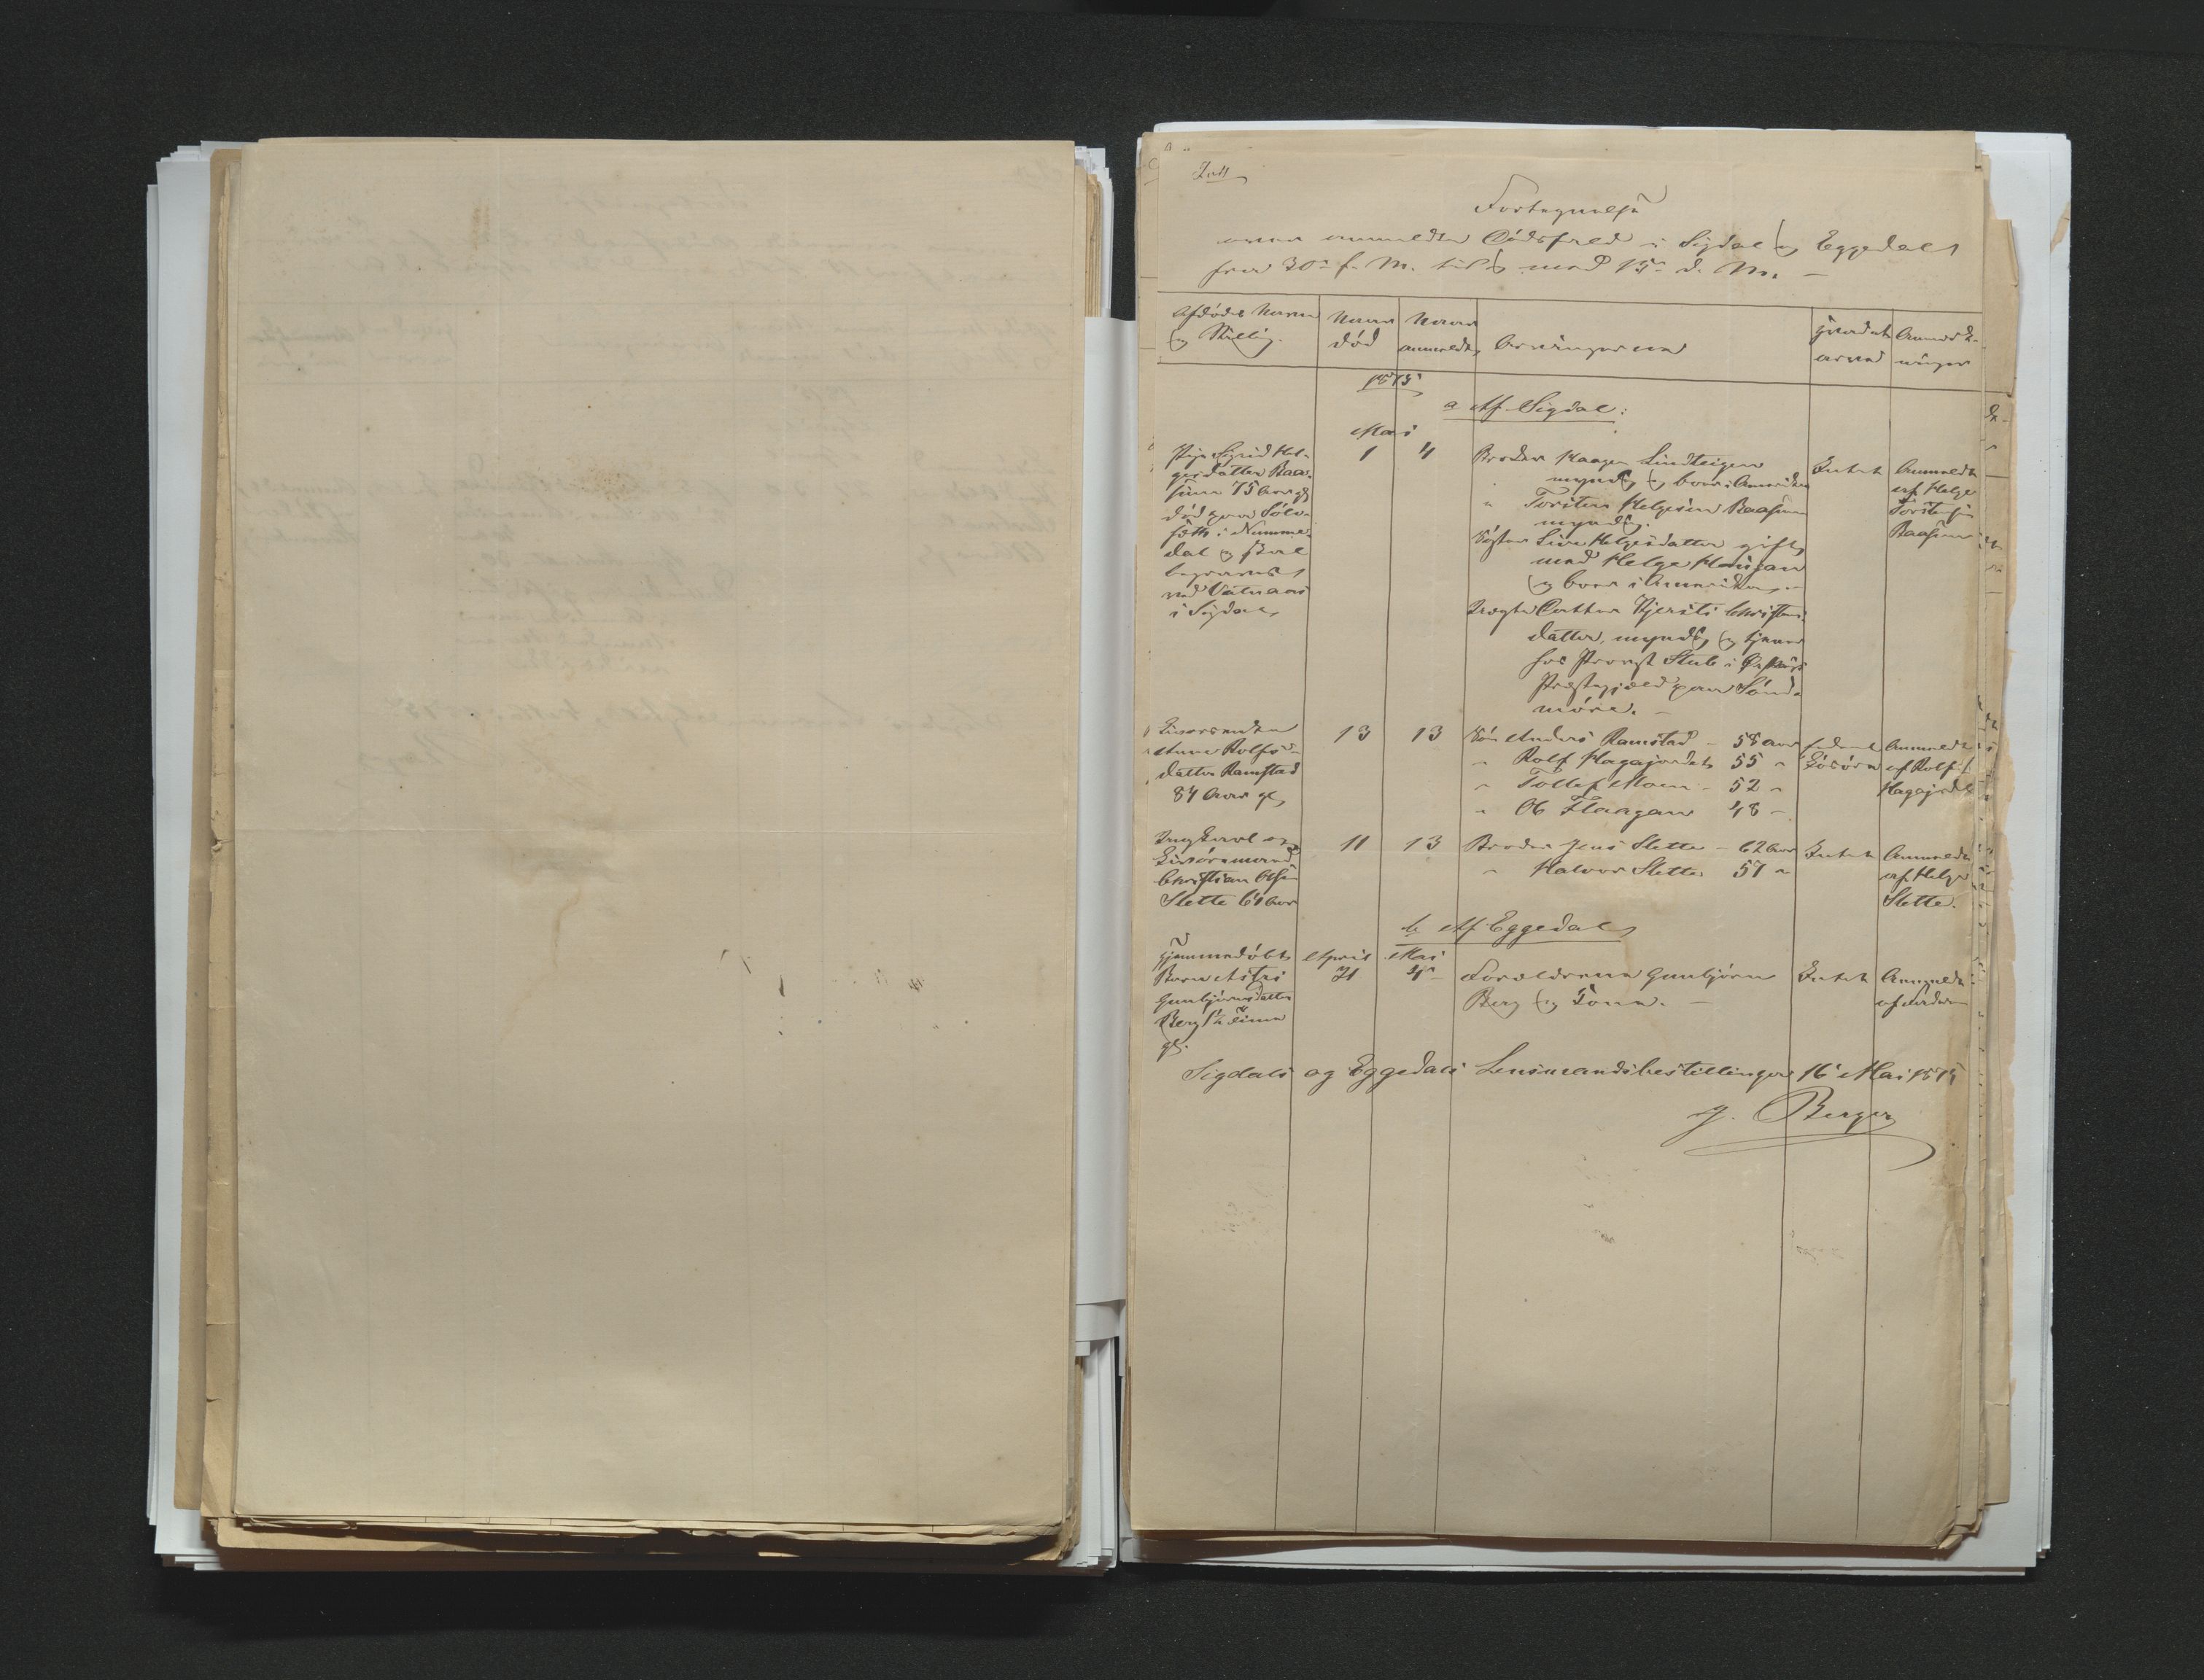 Fortegnelse
over anmeldte Dødsfald i Sigdal og Eggedal
fra 30te f. M. til og med 15de d. M. –
Afdødes Navn
og Stilling.
Naar
død
Naar
anmeldt
Arvingerne
Hvad at
arve
Anmærk-
ninger
1875
a Af Sigdal:
Mai
Pige Sigrid Hel-
gesdatter Baa-
sum 75 Aar gl
død paa
i Numme-
dal og skal
begraves
ved Vatnaas
i Sigdal,
1
4
Broder Haagen Lindteigen
myndg og boer i Amerika
" Torsten Helgesen Baasum
myndg.
Søster Live Helgesdatter gift
med Helge Hansen
og boer i Amerika, -
Uægte Datter Kjersti Christens-
datter, myndg, og tjener
hos Provst Stub i
Præstegjæld paa Sønd-
møre. –
Intet
Anmeldt
af Helge
Torstensen
Baasum
Anne Rolfs-
datter Ramstad
84 Aar gl,
13
13
Søn Anders Ramstad – 58 Aar
" Rolf Hagajordet 55 "
" Tollef Moen - 52 "
" Ole Flaagan 48 –
Løsøre
Anmeldt
af Rolf
Hagajordet
Ungkarl og
Christian Olsen
Slette 64 Aar
11
13
Broder Jens Slette – 62 Aar
" Halvor Slette 57 "
Intet
Anmeldt
af Helge
Slette.
b Af Eggedal
Hjemmedøbt
Barn Astri
Gunbjørnsdatter
Berg ½ Time
gl.
April
21
Mai
Forældrene Gunbjørn
Berg og Kone. –
Intet
Anmeldt
af Faderen
Sigdals og Eggedals Lensmandsbestillinger 16 Mai 1875
G. Berger